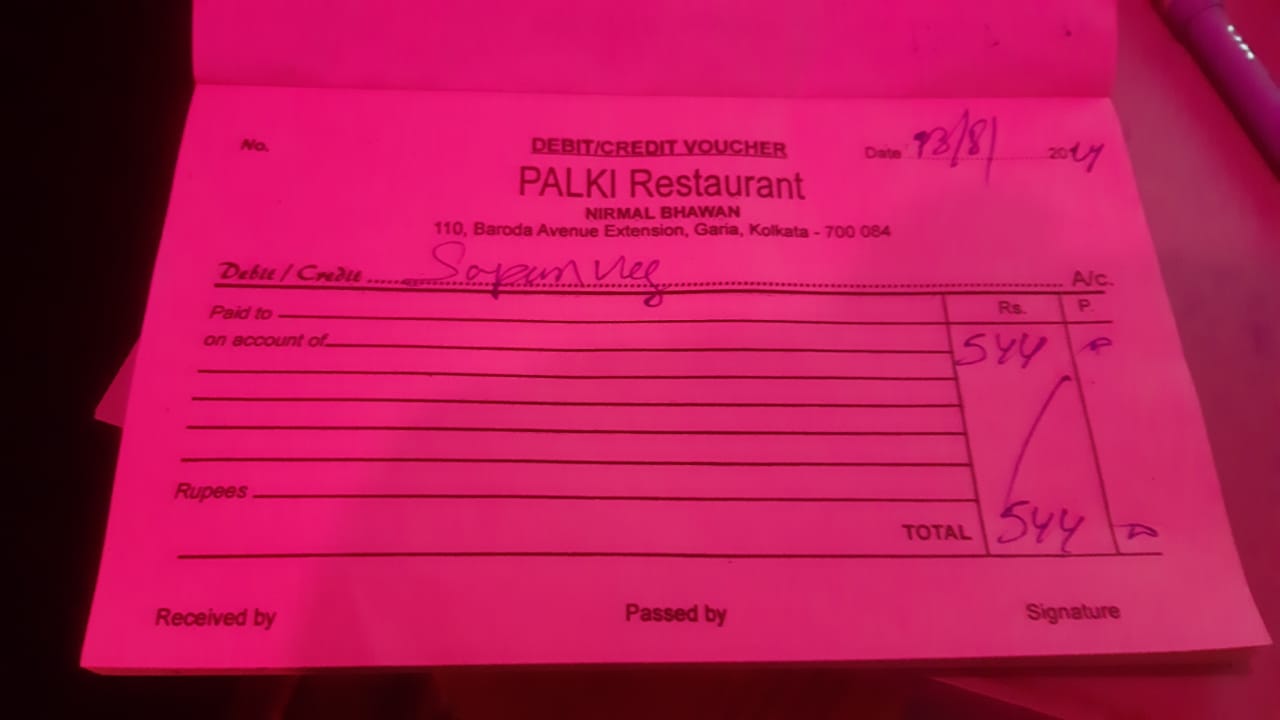 No.
DEBIT/CREDIT VOUCHER
Date 13/8/ 2024
PALKI Restaurant
NIRMAL BHAWAN
110, Baroda Avenue Extension, Garia, Kolkata - 700 084
Debit / Credit Sapan Veg A/c.
Rs. P.
Paid to
on account of 544
Rupees
TOTAL 544
Received by Passed by Signature